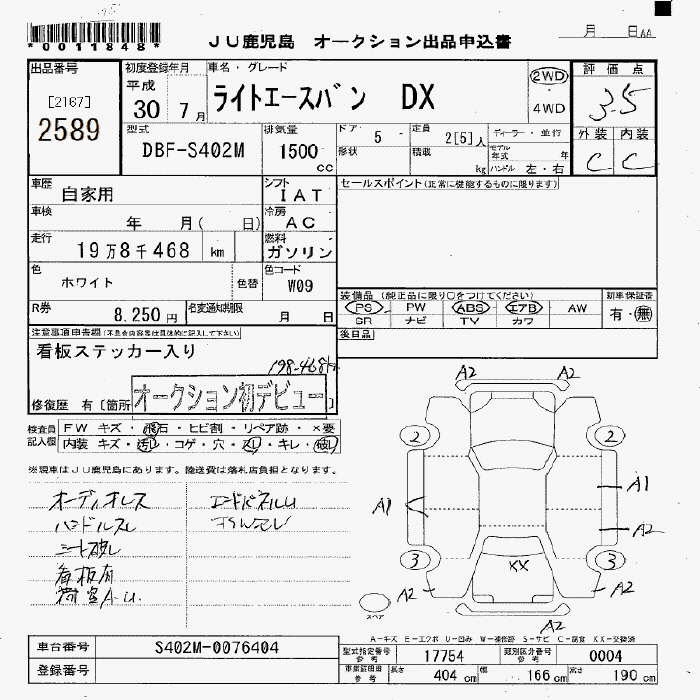 *0011848*
JU鹿児島 オークション出品申込書
月 日
出品番号
[2167]
2589
初度登録年月
平成
30 7月
車名・グレード
ライトエースバン DX
2WD
4WD
評価点
3.5
外装 内装
C C
型式
DBF-S402M
排気量
1500
cc
ドア・ 5 -
形状
定員 2[5]人
積載 kg
ディーラー・並行
モデル年式 年
ハンドル 左・右
車歴
自家用
シフト
IAT
セールスポイント(正常に機能するものに限ります)
車検
年 月( 日)
冷房
AC
走行
19万8千468 km
燃料
ガソリン
色
ホワイト
色替
色コード
W09
装備品(純正品に限り○をつけてください)
PS PW ABS エアB AW
SR ナビ TV カワ
新車保証書
有・無
R券
8,250円
名変通知期限
月 日
後日品
注意事項申告欄(不具合内容等は具体的に記入して下さい)
看板ステッカー入り
198-468k
修復歴 有[箇所 オークション初デビュー]
検査員記入欄
FW キズ・飛石・ヒビ割・リペア跡・×要
内装 キズ・汚れ・コゲ・穴・スレ・キレ・破れ
※現車はJU鹿児島にあります。陸送費は落札店負担となります。
オーディオレス
ハンドルスレ
シート破レ
看板有
荷室A.U.
ロードパネルU
A2 A2
2 2
A1 A1
A2
3 3
XX
A2 A2
A2
スペア
A-キズ E-エクボ U-凹み W-補修跡 S-サビ C-腐食 XX-交換済
車台番号 S402M-0076404
登録番号
型式指定番号 参考 17754
類別区分番号 参考 0004
車検証明細 参考
長さ 404 cm
幅 166 cm
高さ 190 cm